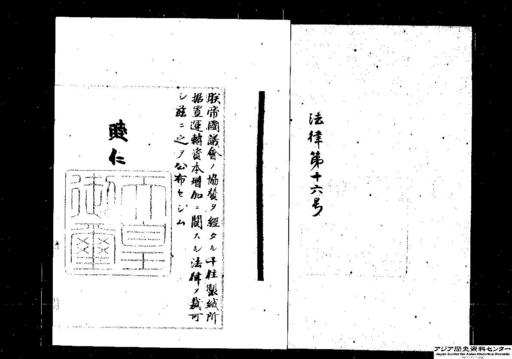 法律第十六号
朕帝國議會ノ協賛ヲ經タル千住製絨所
据置運轉資本増加ニ関スル法律ヲ裁可
シ茲ニ之ヲ公布セシム
睦仁
天皇
御璽
アジア歴史資料センター
Japan Center for Asian Historical Records